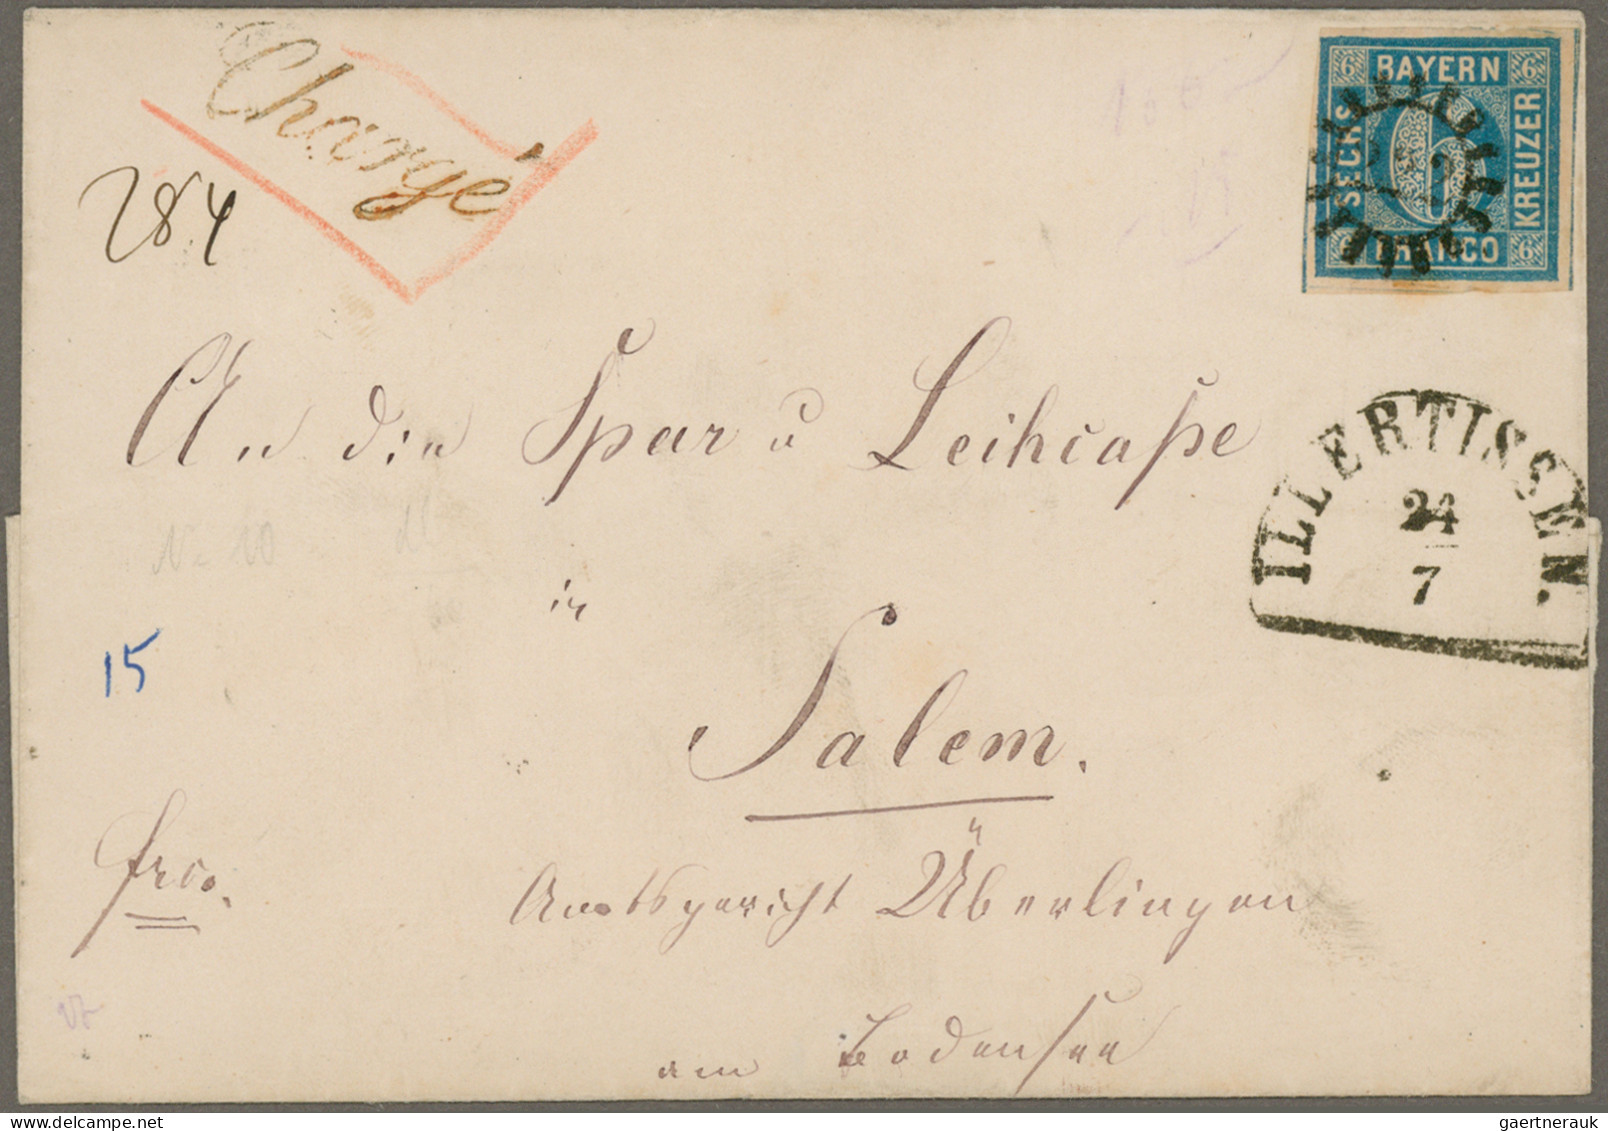 Chargé
284
6 BAYERN 6
SECHS
6
KREUZER
6 FRANCO 6
An die Spar u Leihcaße
ILLERTISSEN.
24
7
in
15
Salem.
frco.
Amtsgericht Überlingen
am Bodensee
gaertnerauk@delcampe